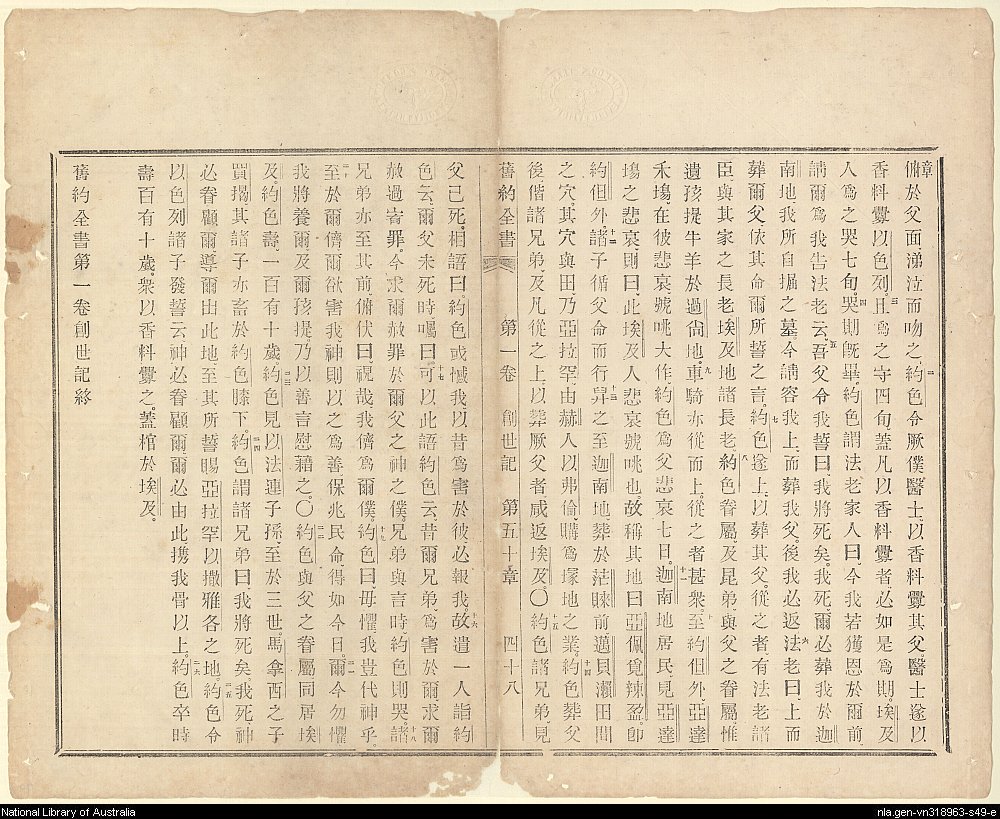 章俯於父面涕泣而吻之約色令厥僕醫士以香料釁其父醫士遂以
香料釁以色列且爲之守四旬蓋凡以香料釁者必如是爲期埃及
人爲之哭七旬哭期既畢約色謂法老家人曰今我若獲恩於爾前
請爾爲我告法老云吾父令我誓曰我將死矣我死爾必葬我於迦
南地我所自掘之墓今請容我上而葬我父後我必返法老曰上而
葬爾父依其命爾所誓之言約色遂上以葬其父從之者有法老諸
臣與其家之長老埃及地諸長老約色眷屬及昆弟與父之眷屬惟
遺孩提牛羊於過尚地車騎亦從而上從之者甚衆至約但外亞達
禾塲在彼悲哀號咷大作約色爲父悲哀七日迦南地居民見亞達
塲之悲哀則曰此埃及人悲哀號咷也故稱其地曰亞佩覓辣盈卽
約但外諸子循父命而行舁之至迦南地葬於茫睞前邁貝瀨田間
之穴其穴與田乃亞拉罕由赫人以弗倫購爲塚地之業約色葬父
後偕諸兄弟及凡從之上以葬厥父者咸返埃及〇約色諸兄弟見
舊約全書 第一卷 創世記 第五十章 四十八
父已死相語曰約色或憾我以昔爲害於彼必報我故遣一人詣約
色云爾父未死時囑曰可以此語約色云昔爾兄弟爲害於爾求爾
赦過宥罪今求爾赦罪於爾父之神之僕兄弟與言時約色則哭諸
兄弟亦至其前俯伏曰視哉我儕爲爾僕約色曰毋懼我豈代神乎
至於爾儕爾欲害我神則以之爲善保兆民命得如今日爾今勿懼
我將養爾及爾孩提乃以善言慰藉之〇約色與父之眷屬同居埃
及約色壽一百有十歲約色見以法蓮子孫至於三世馬拿西之子
買撝其諸子亦畜於約色膝下約色謂諸兄弟曰我將死矣我死神
必眷顧爾導爾由此地至其所誓賜亞拉罕以撒雅各之地約色令
以色列諸子發誓云神必眷顧爾爾必由此携我骨以上約色卒時
壽百有十歲衆以香料釁之蓋棺於埃及
舊約全書第一卷創世記終
National Library of Australia
nla.gen-vn318963-s49-e